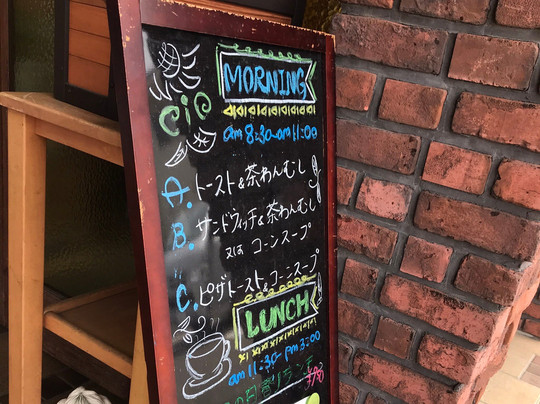 cio
MORNING
am 8:30~am 11:00
A. トースト&茶わんむし
B. サンドウィッチ&茶わんむし
又は コーンスープ
C. ピザトースト&コーンスープ
LUNCH
am 11:30~pm 3:00
日替りランチ